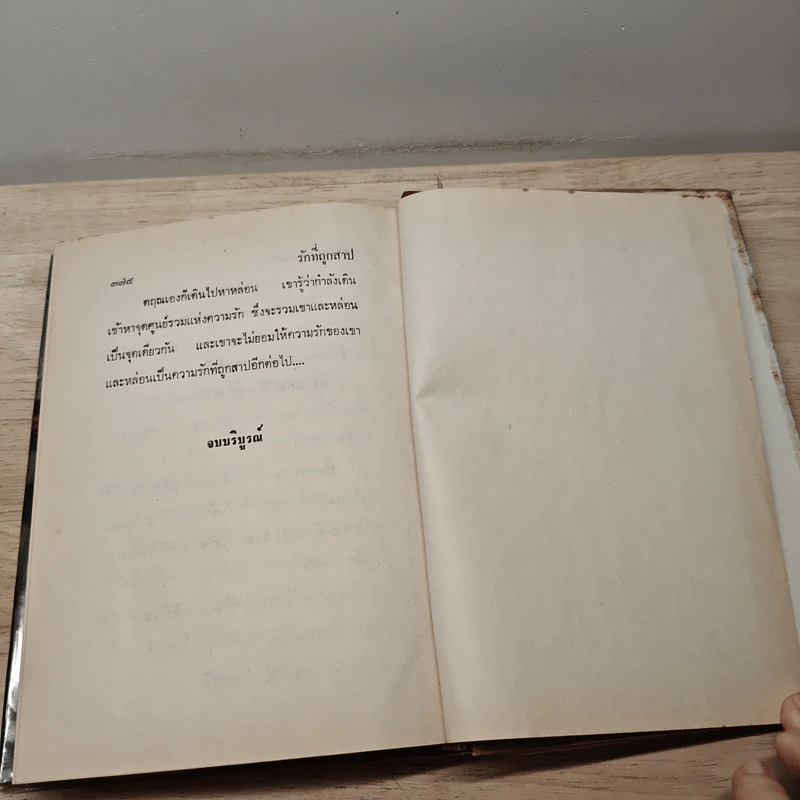 รักที่ถูกสาป
๓๗๔
ตฤณเองก็เดินไปหาหล่อน เขารู้ว่ากำลังเดิน
เข้าหาจุดศูนย์รวมแห่งความรัก ซึ่งจะรวมเขาและหล่อน
เป็นจุดเดียวกัน และเขาจะไม่ยอมให้ความรักของเขา
และหล่อนเป็นความรักที่ถูกสาปอีกต่อไป....
จบบริบูรณ์